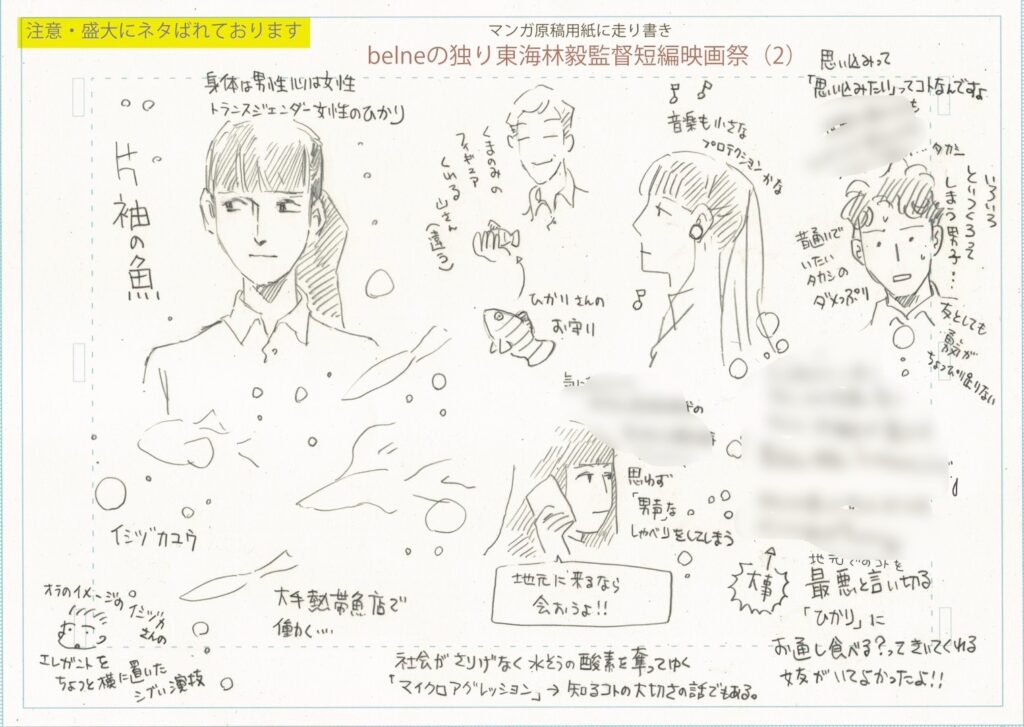 注意・盛大にネタばれております
マンガ原稿用紙に走り書き
belneの独り東海林毅監督短編映画祭（2）
身体は男性心は女性
トランスジェンダー女性のひかり
片袖の魚
イシヅカユウ
くまのみの
フィギュア
くれる
山さん
(違う)
ひかりさんの
お守り
音楽も小さな
プロテクションかな
思い込みって
「思い込みたい」ってコトなんですよ
も
…タカシ
いろいろ
とりつくろって
しまう男子…
普通いで
いたい
タカシの
ダメっぷり
友としても
勇気が
ちょっぴり足りない
気に
ドの
思わず
「男声」な
しゃべりをしてしまう
地元に来るなら
会おうよ!!
大手熱帯魚店で
働く…
オラのイメージの
イシヅカ
さんの
エレガントを
ちょっと横に置いた
シブい演技
社会がさりげなく水そうの酸素を奪ってゆく
「マイクロアグレッション」→知るコトの大切さの話でもある。
大事
地元でのコトを
最悪と言い切る
「ひかり」に
お通し食べる?ってきいてくれる
女友がいてよかったよ!!